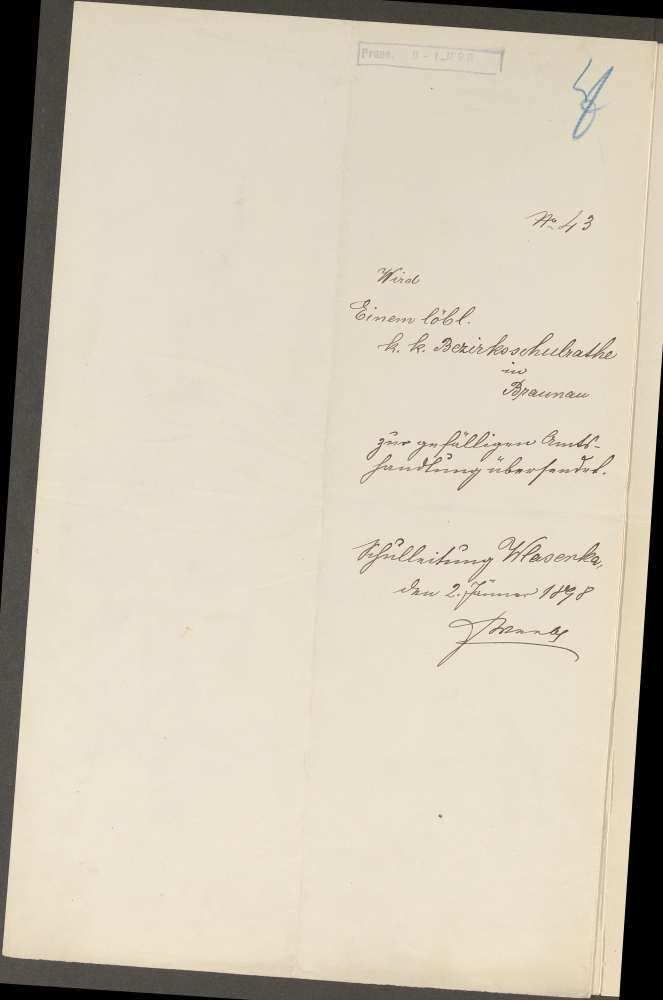 Präs.
No. 43
Wird
Einem löbl.
k. k. Bezirksschulrathe
in
Braunau
zur gefälligen Amts-
handlung übersendet.
Schulleitung Wlasenka,
den 2. Jänner 1898